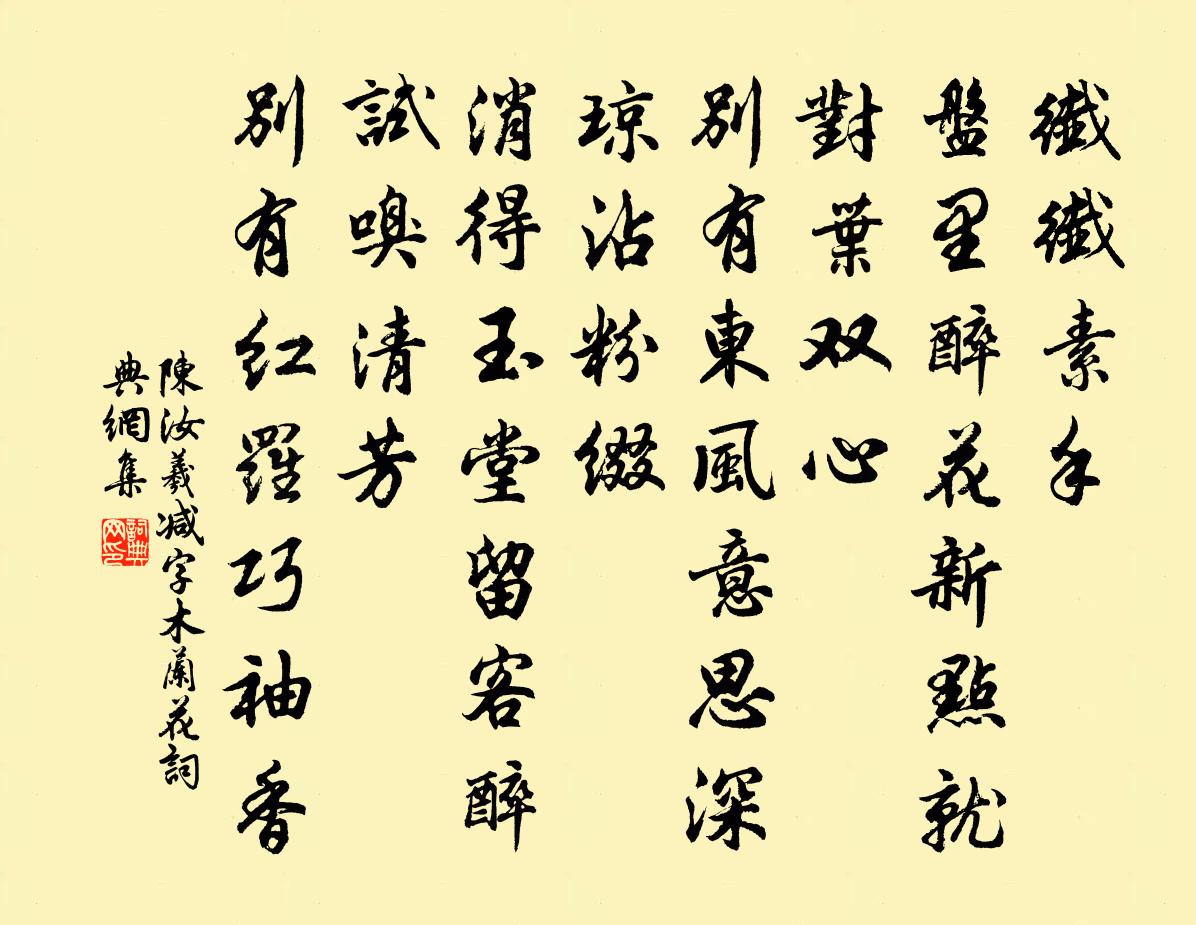 纖纖素手
盤里醉花新點就
對葉双心
別有東風意思深
琼沾粉綴
消得玉堂留客醉
試嗅清芳
別有红羅巧袖香
陳汝羲减字木蘭花詞
典網集
詞典网印